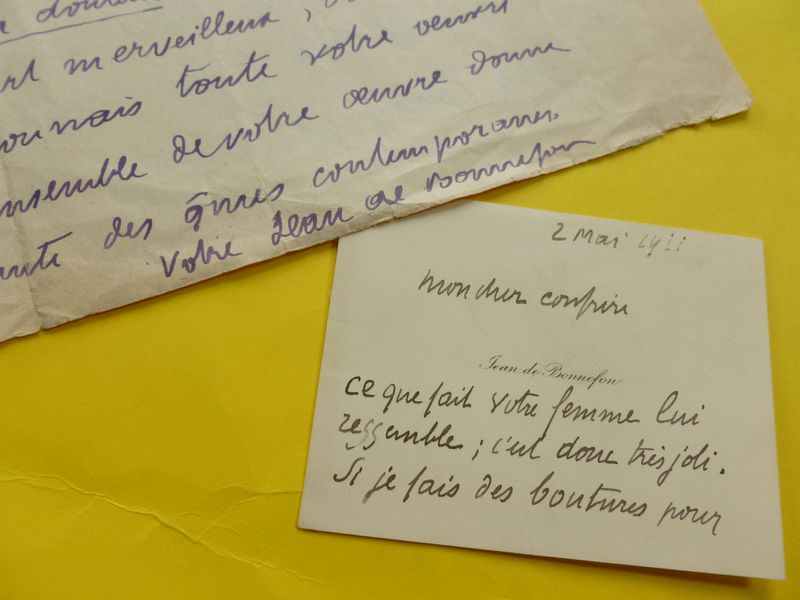 a douleur
art merveilleux,
connais toute votre oeuvre
ensemble de votre œuvre donne
des âmes contemporaines.
Votre Jean de Bonnefon
2 Mai 1911
Mon cher confrère
Jean de Bonnefon
ce que fait votre femme lui
ressemble ; c'est donc très joli.
Si je fais des boutures pour